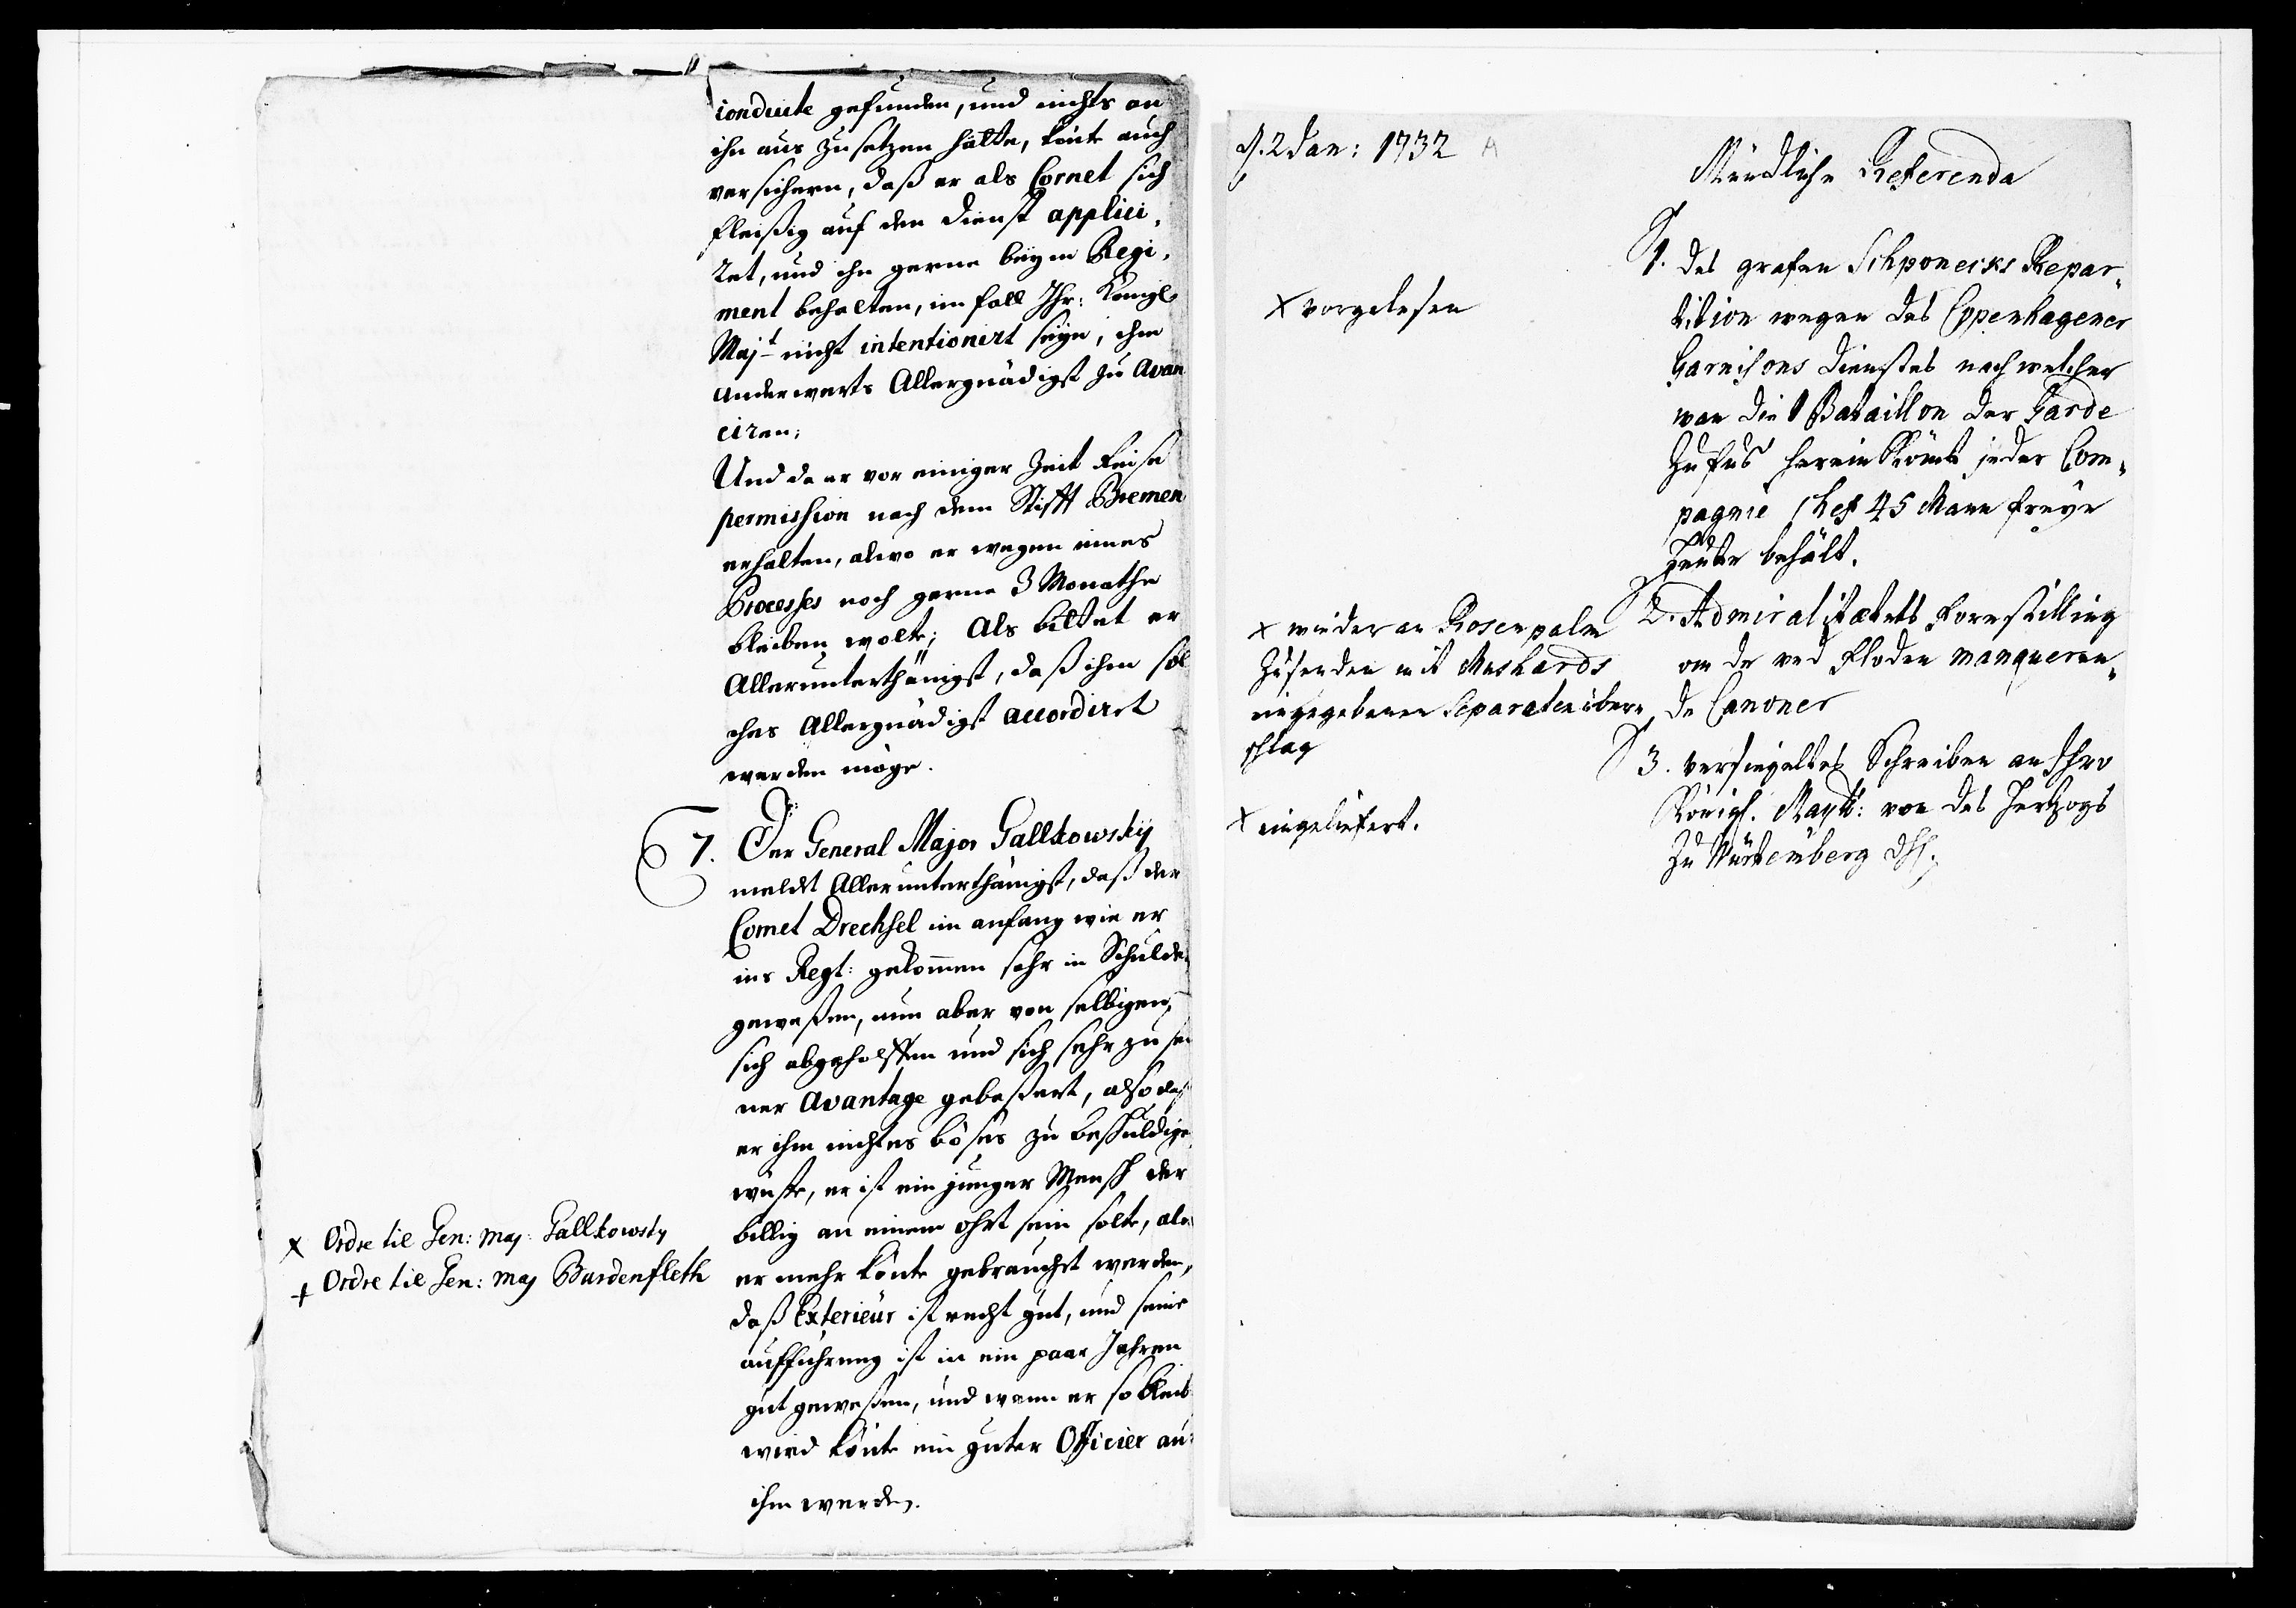 conduite gefunden, und nichts an
ihn aus zu setzen hätte, könte auch
versichern, daß er als Cornet sich
fleißig auf den Dienst applici-
ret, und ihn gerne beym Regi-
ment behalten, im fall Ihr: Königl
Majt nicht intentionirt seyn, ihm
anderwerts Allergnädigst zu Avan
ciren;
Und da er vor einiger Zeit Reise
permission nach dem Stifft Bremen
erhalten, alwo er wegen eines
Processes noch gerne 3 Monathe
bleiben wolte; Als bittet er
Allerunterthänigst, daß ihm sol
ches Allergnädigst accordirt
werden möge.
7. Der General Major Gallkowsky
meldt Allerunterthänigst, daß der
Cornet Drechsel im anfang wie er
ins Regt: gekommen sehr in Schulden
geweßen, nun aber von selbigen
sich abgeholffen und sich sehr zu sei
ner Avantage gebeßert, also daß
er ihm nichtes böses zu beschuldigen
wüste, er ist ein junger Mensch der
billig an einem ohrt sein solte, alwo
er mehr könte gebraucht werden,
daß Exterieur ist recht gut, und seine
aufführung ist in ein paar Jahren
gut geweßen, und wann er so bleibt
wird könte ein guter Officier aus
ihm werden.
x Ordre til Gen: maj: Gallkowsky
+ Ordre til Gen: maj Bardenfleth
d. 2 Jan: 1732 A
Mündliche Referenda
1. Des grafen Schponecks Repar-
tition wegen des Coppenhagener
Garnisons Dienstes nach welcher
wan die 1 Bataillon der Garde
zu fus herein kömt jeder Com-
pagnie Chef 45 Mann freye
Leute behält.
x vorgelesen
2. Admiralitætets Forestilling
om de ved Floden manqueren-
de Canoner
x wieder an Rosenpalm
zusenden mit Mushards
eingegebenen Separaten über-
schlag
3. versiegeltes Schreiben an Ihro
Königl. Maytt: von des Hertzogs
zu Würtemberg Dhl.
x eingeliefert.